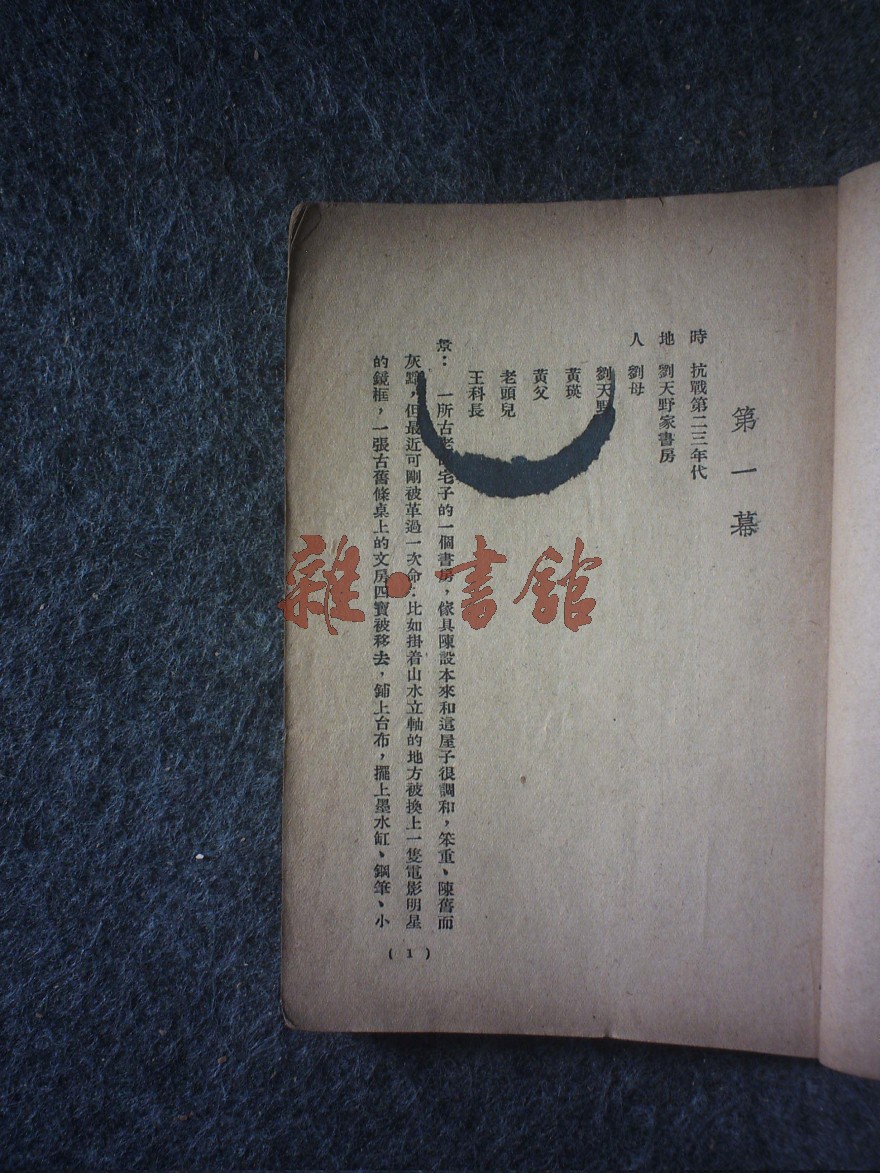 第一幕
時　抗戰第二三年代
地　劉天野家書房
人　劉母
劉天野
黃瑛
黃父
老頭兒
王科長
景：　一所古老的宅子的一個書房，傢具陳設本來和這屋子很調和，笨重、陳舊而
灰黯，但最近可剛被革過一次命：比如掛着山水立軸的地方被換上一隻電影明星
的鏡框，一張古舊條桌上的文房四寶被移去，鋪上台布，擺上墨水缸、鋼筆、小
( 1 )
雜·書館